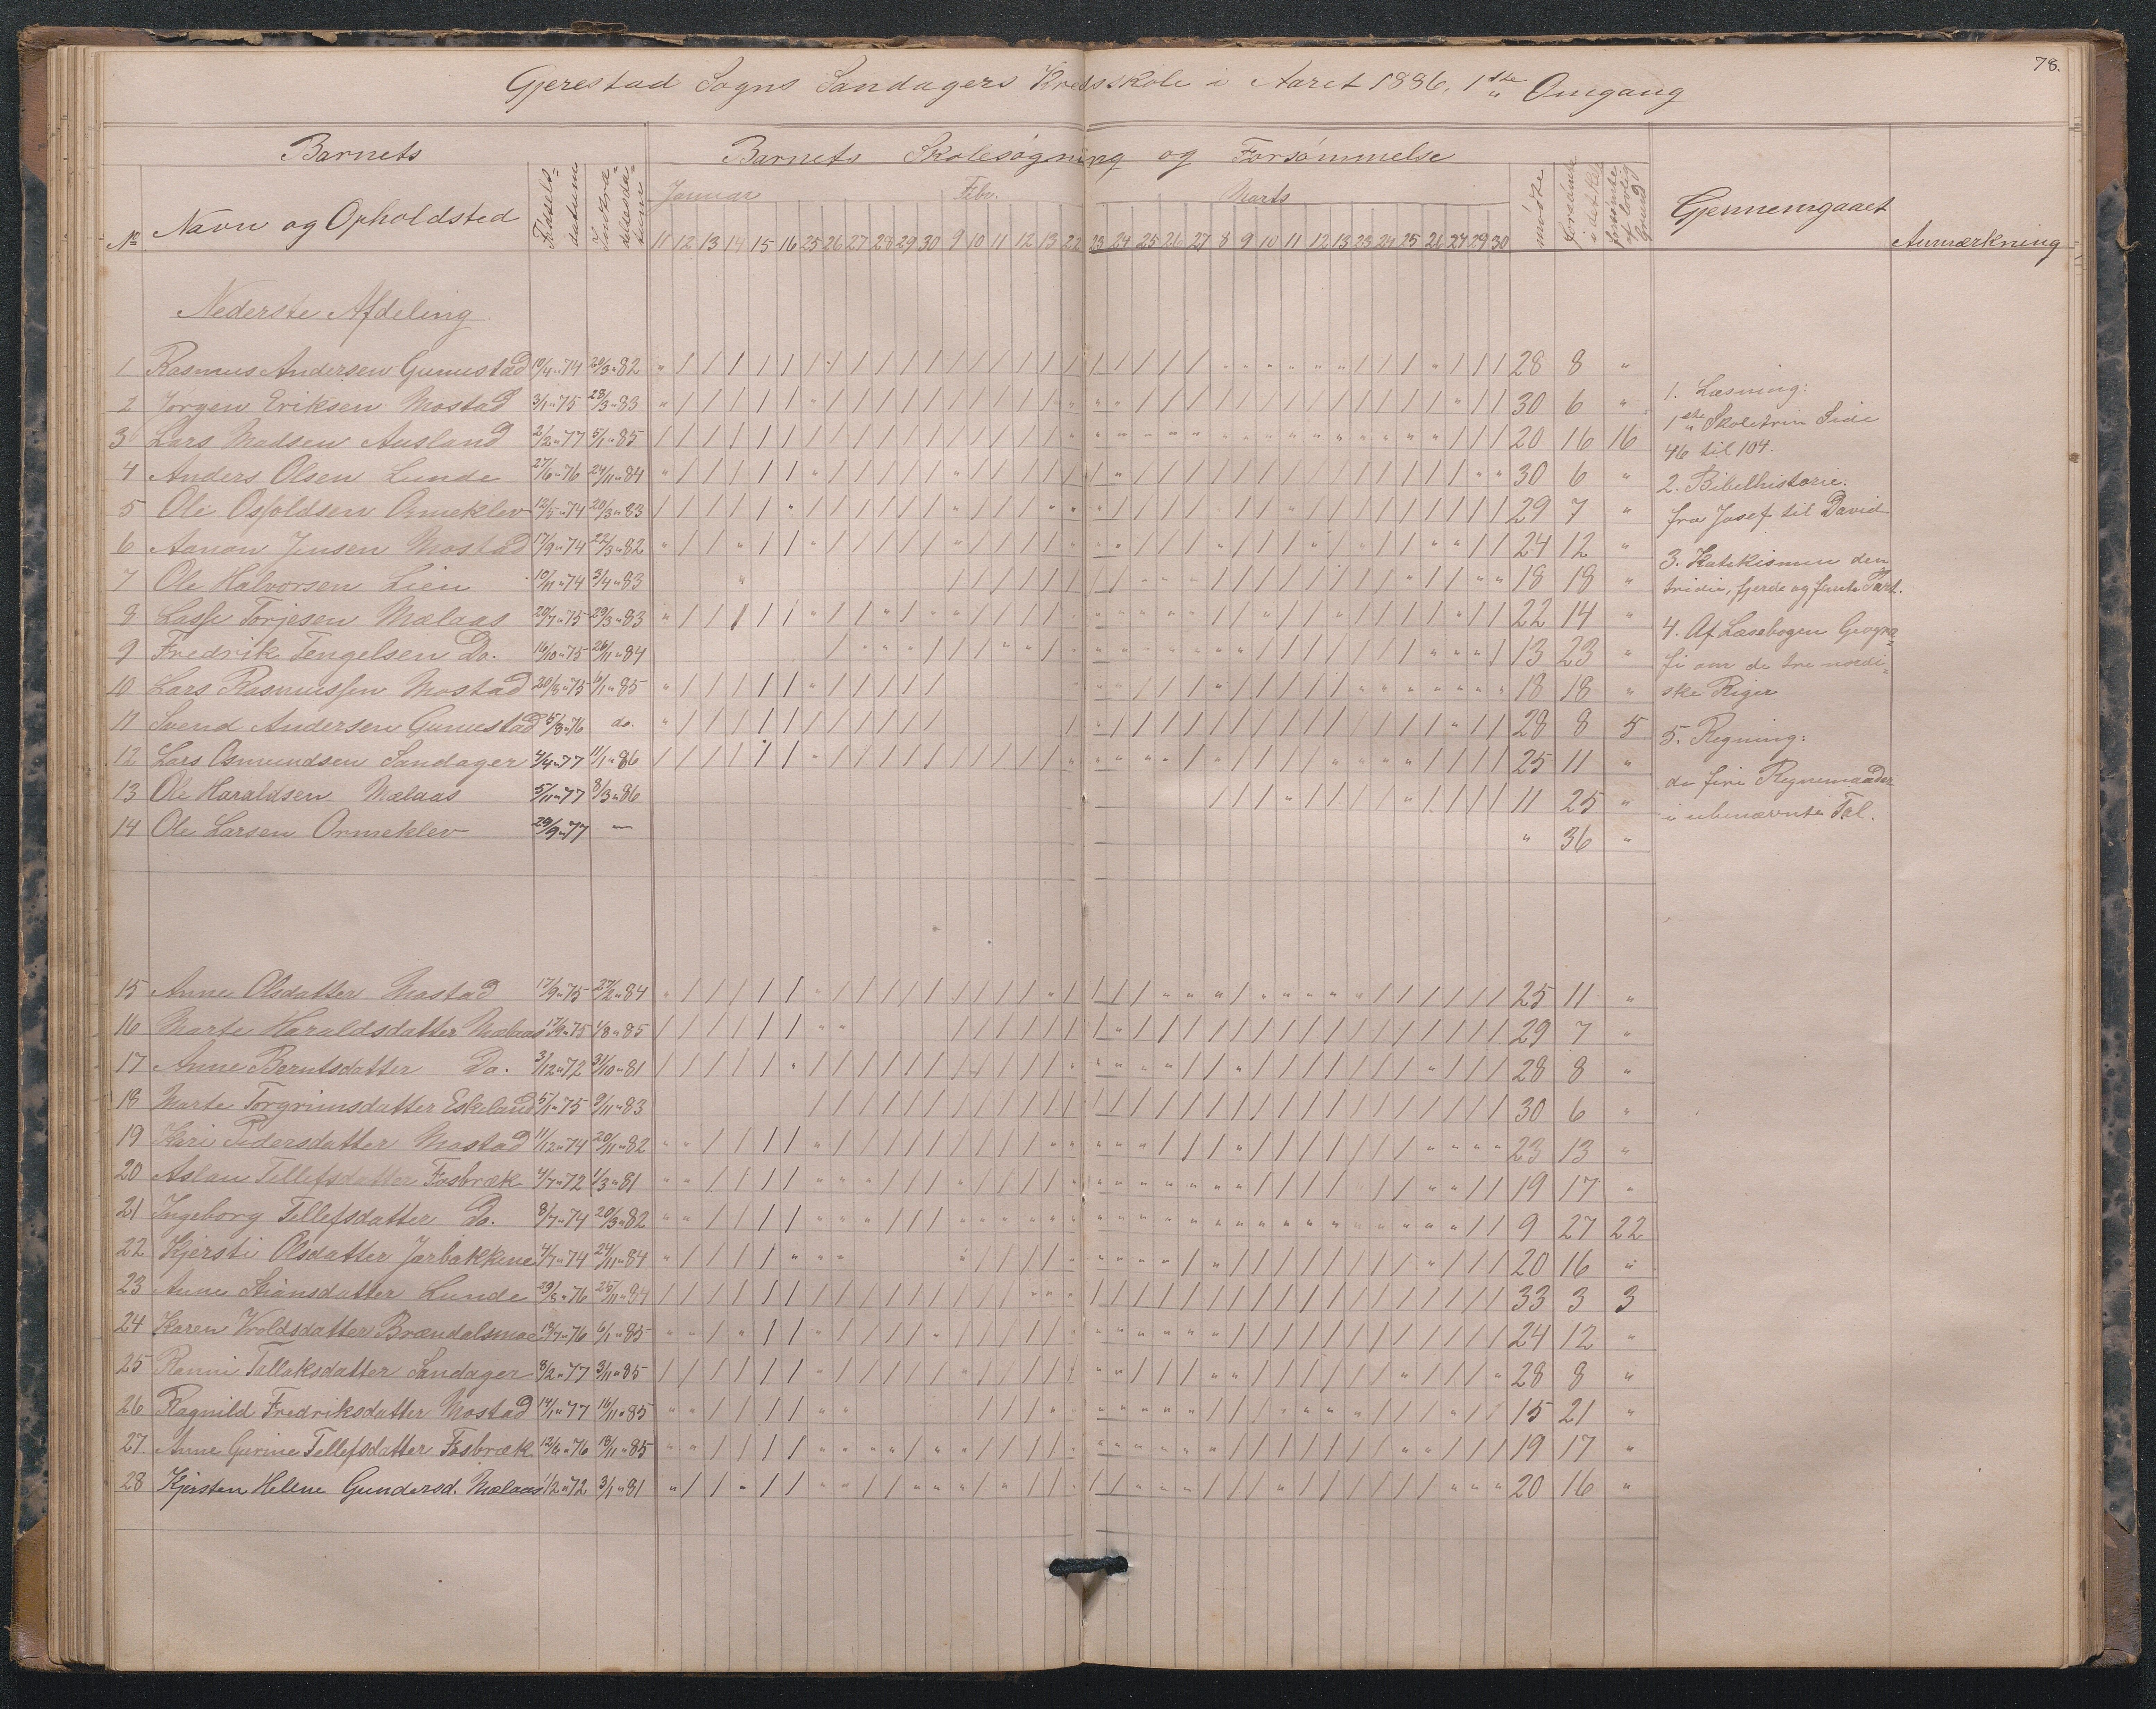 78.
Gjerestad Sogns Sandagers Kredsskole i Aaret 1886, 1ste Omgang
Barnets
Barnets Skolesøgning og Forsømmelse
No Navn og Opholdsted Fødsels-datum
Januar Febr. Marts
11 12 13 14 15 16 25 26 27 28 29 30 9 10 11 12 13 22 23 24 25 26 27 8 9 10 11 12 13 23 24 25 26 27 29 30
mødte forsømte
Gjennemgaaet
Anmærkning
Nederste Afdeling
1 Rasmus Andersen Gunnestad 28 8 "
2 Jørgen Eriksen Mostad 3/1 " 75 28/3 " 83 30 6 "
3 Lars Madsen Ausland 2/2 " 77 5/1 " 85 20 16 16
4 Anders Olsen Lunde 27/6 " 76 24/11 " 84 30 6 "
5 Ole Osfoldsen Ormeklev 12/5 " 74 20/3 " 83 29 7 "
6 Aanon Jensen Mostad 17/9 " 74 22/3 " 82 24 12 "
7 Ole Halvorsen Lien 10/11 " 74 3/4 " 83 18 18 "
8 Lasse Torjesen Mælaas 29/7 " 75 29/3 " 83 22 14 "
9 Fredrik Tengelsen Do. 16/10 " 75 26/11 " 84 13 23 "
10 Lars Rasmussen Mostad 20/3 " 75 6/1 " 85 18 18 "
11 Svend Andersen Gunnestad 5/3 " 76 do. 28 8 5
12 Lars Osmundsen Sandager 4/4 " 77 11/1 " 86 25 11 "
13 Ole Haraldsen Mælaas 5/11 " 77 8/3 " 86 11 25 "
14 Ole Larsen Ormeklev 29/9 " 77 — " 36 "
15 Anne Olsdatter Mostad 17/9 " 75 27/2 " 84 25 11 "
16 Marte Haraldsdatter Mælaas 17/9 " 75 1/8 " 85 29 7 "
17 Anne Berntsdatter Do. 3/12 " 72 31/10 " 81 28 8 "
18 Marte Torgrimsdatter Eskeland 5/1 " 75 9/11 " 83 30 6 "
19 Kari Pedersdatter Mostad 11/12 " 74 20/11 " 82 23 13 "
20 Aslau Tellefsdatter Fosbræk 4/7 " 72 1/3 " 81 19 17 "
21 Ingeborg Tellefsdatter Do. 8/7 " 74 20/3 " 82 9 27 22
22 Kjersti Olsdatter Jorbakkene 4/7 " 74 24/11 " 84 20 16 "
23 Anne Stiansdatter Lunde 29/3 " 76 25/11 " 84 33 3 3
24 Karen Vroldsdatter Brændalsmoe 6/1 " 85 24 12 "
25 Ranni Tallaksdatter Sandager 8/2 " 77 3/11 " 85 28 8 "
26 Ragnild Fredriksdatter Mostad 14/1 " 77 16/11 " 85 15 21 "
27 Anne Gurine Tellefsdatter Fosbræk 18/11 " 85 19 17 "
28 Kjersten Helene Gundersd. Mælaas 1/2 " 72 3/1 " 81 20 16 "
1. Læsning:
1ste Skoletrin Side
46 til 104.
2. Bibelhistorie:
fra Josef til David
3. Katekismen den
tridie, fjerde og femte Part.
4. Af Læsebogen Geogra=
fi om de tre nordi=
ske Riger
5. Regning:
de fire Regnemaader
i ubenævnte Tal.